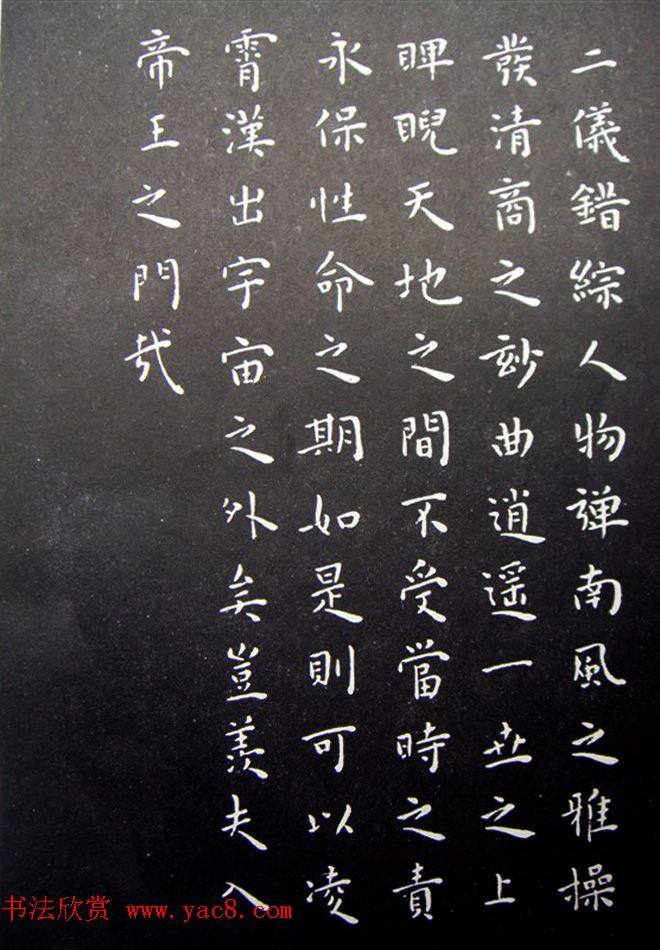 二儀錯綜人物彈南風之雅操
發清商之妙曲逍遥一世之上
睥睨天地之間不受當時之責
永保性命之期如是則可以凌
霄漢出宇宙之外矣豈羨夫入
帝王之門哉
书法欣赏 www.yac8.com